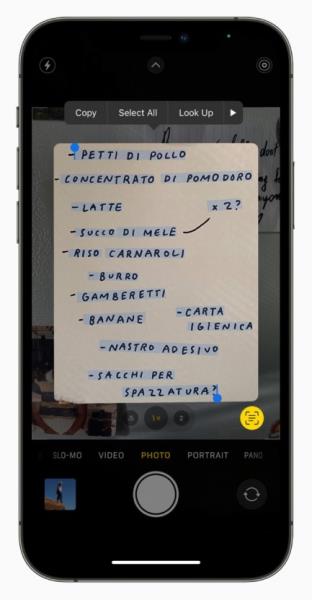 Copy Select All Look Up
- PETTI DI POLLO
- CONCENTRATO DI POMODORO
- LATTE x 2?
- SUCCO DI MELE
- RISO CARNAROLI
- BURRO
- GAMBERETTI
- BANANE
- CARTA
IGIENICA
- NASTRO ADESIVO
- SACCHI PER
SPAZZATURA?
SLO-MO VIDEO PHOTO PORTRAIT PANO